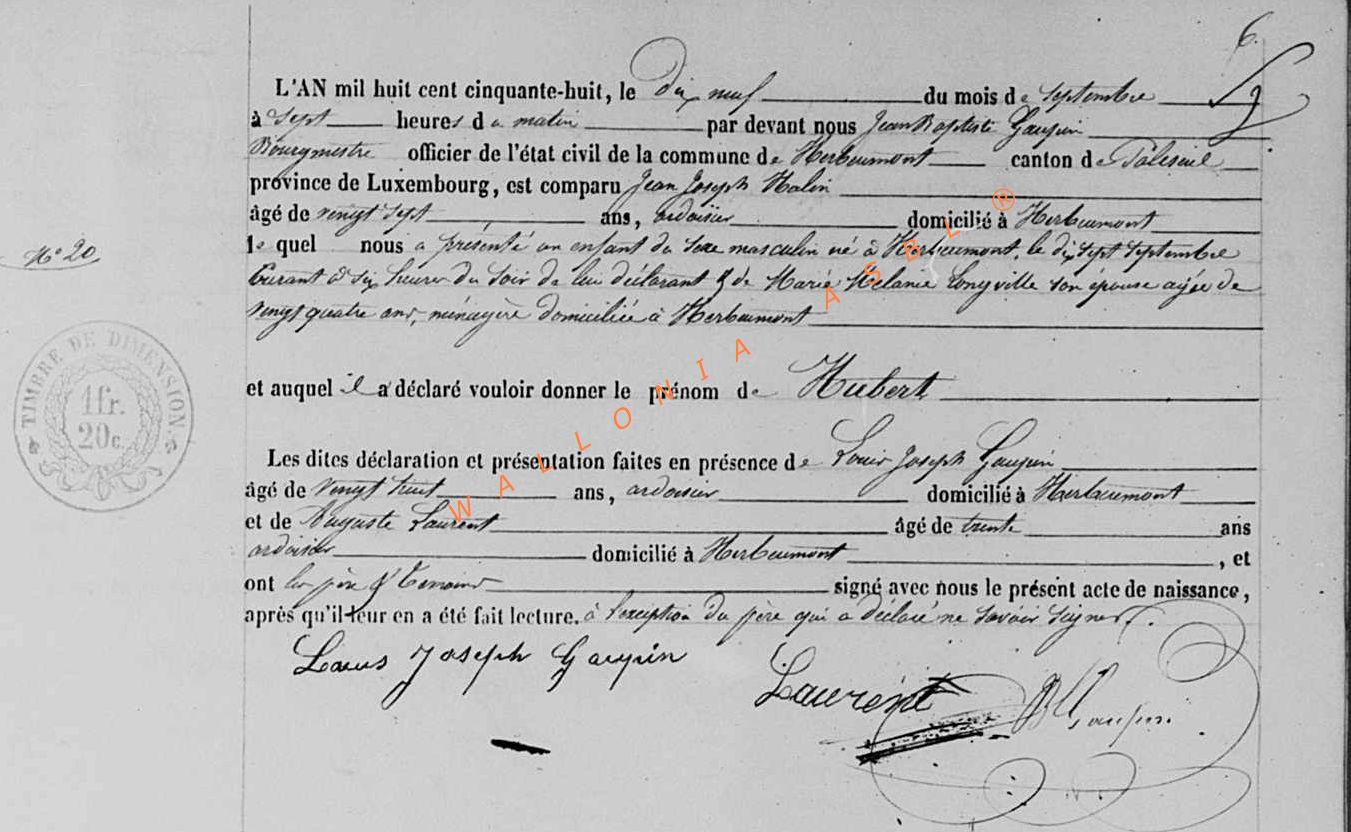 6.
L'AN mil huit cent cinquante-huit, le Dix neuf du mois de Septembre
à Sept heures du matin par devant nous Jean Baptiste Gaupin
Bourgmestre officier de l'état civil de la commune de Herbeumont canton de Paliseul
province de Luxembourg, est comparu Jean Joseph Halin
âgé de vingt sept ans, ardoisier domicilié à Herbeumont
le quel nous a présenté un enfant du sexe masculin né à Herbeumont, le dix sept septembre
N° 20
Courant à six heures du soir de lui déclarant & de Marie Mélanie Longville son épouse agée de
vingt quatre ans, ménagère domiciliée à Herbeumont
et auquel il a déclaré vouloir donner le prénom de Hubert
TIMBRE DE DIMENSION
1 fr.
20 c.
Les dites déclaration et présentation faites en présence de Louis Joseph Gaupin
âgé de vingt huit ans, ardoisier domicilié à Herbeumont
et de Auguste Laurent âgé de trente ans
ardoisier domicilié à Herbeumont, et
ont les père & témoins signé avec nous le présent acte de naissance,
après qu'il leur en a été fait lecture. à l'exception du père qui a déclaré ne savoir signer.
Louis Joseph Gaupin
Laurent
JB Gaupin
WALLONIA ASBL ®